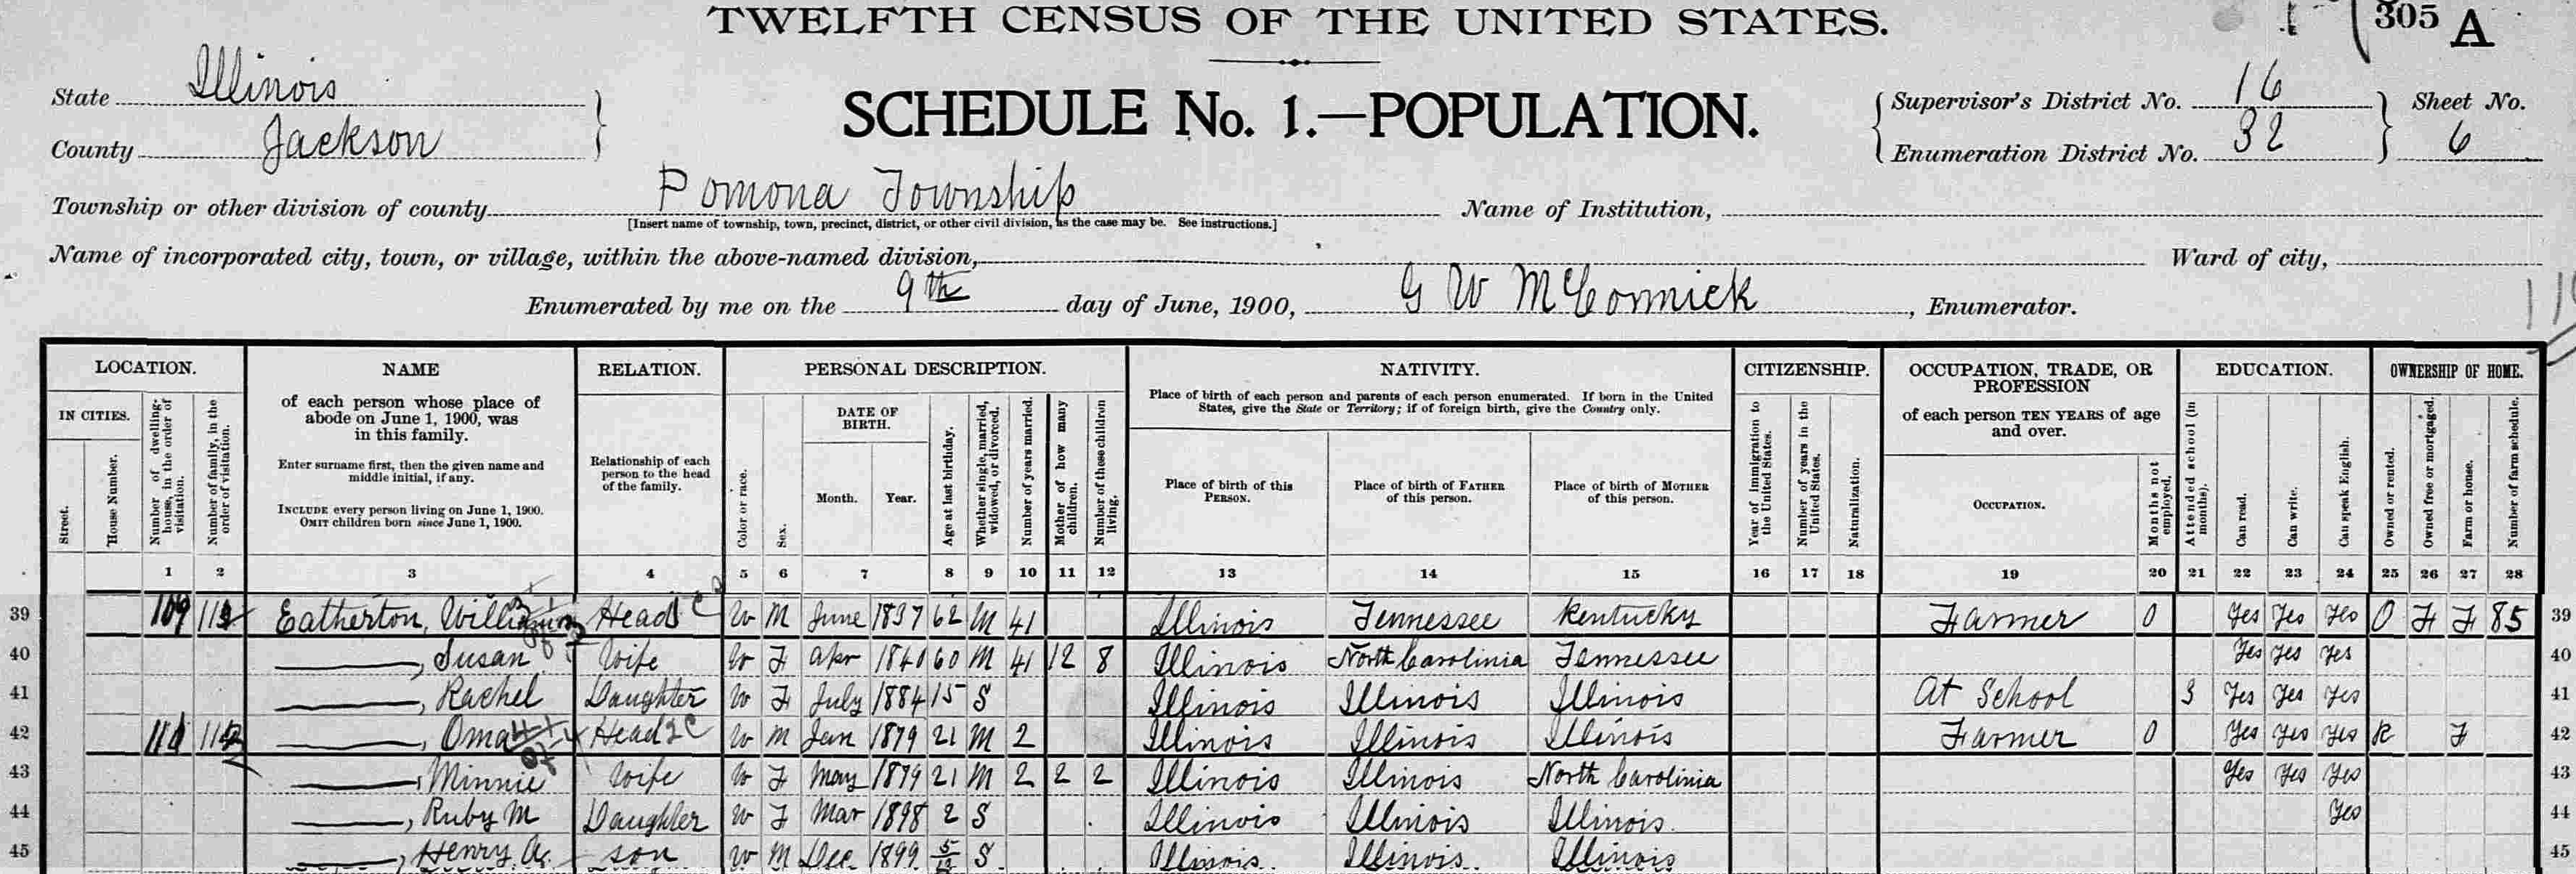 TWELFTH CENSUS OF THE UNITED STATES.
305 A
SCHEDULE No. 1.—POPULATION.
State Illinois
County Jackson
Supervisor's District No. 16
Enumeration District No. 32
Sheet No.
6
Township or other division of county Pomona Township
[Insert name of township, town, precinct, district, or other civil division, as the case may be. See instructions.]
Name of Institution,
Name of incorporated city, town, or village, within the above-named division,
Ward of city,
Enumerated by me on the 9th day of June, 1900, G W McCormick, Enumerator.
LOCATION.
IN CITIES.
Street.
House Number.
Number of dwelling-house, in the order of visitation.
Number of family, in the order of visitation.
NAME
of each person whose place of abode on June 1, 1900, was in this family.
Enter surname first, then the given name and middle initial, if any.
INCLUDE every person living on June 1, 1900.
OMIT children born since June 1, 1900.
RELATION.
Relationship of each person to the head of the family.
PERSONAL DESCRIPTION.
Color or race.
Sex.
DATE OF BIRTH.
Month. Year.
Age at last birthday.
Whether single, married, widowed, or divorced.
Number of years married.
Mother of how many children.
Number of these children living.
NATIVITY.
Place of birth of each person and parents of each person enumerated. If born in the United States, give the State or Territory; if of foreign birth, give the Country only.
Place of birth of this PERSON.
Place of birth of FATHER of this person.
Place of birth of MOTHER of this person.
CITIZENSHIP.
Year of immigration to the United States.
Number of years in the United States.
Naturalization.
OCCUPATION, TRADE, OR PROFESSION
of each person TEN YEARS of age and over.
OCCUPATION.
Months not employed.
EDUCATION.
Attended school (in months).
Can read.
Can write.
Can speak English.
OWNERSHIP OF HOME.
Owned or rented.
Owned free or mortgaged.
Farm or house.
Number of farm schedule.
1 2 3 4 5 6 7 8 9 10 11 12 13 14 15 16 17 18 19 20 21 22 23 24 25 26 27 28
39 109 Eatherton, William Head W M June 1837 62 M 41 Illinois Tennessee Kentucky Farmer 0 Yes Yes Yes O F F 85 39
40 ——, Susan Wife W F Apr 1840 60 M 41 12 8 Illinois North Carolinia Tennessee Yes Yes Yes 40
41 ——, Rachel Daughter W F July 1884 15 S Illinois Illinois Illinois At School 3 Yes Yes Yes 41
42 ——, Oma Head W M Jan 1879 21 M 2 Illinois Illinois Illinois Farmer 0 Yes Yes Yes R F 42
43 ——, Minnie Wife W F May 1879 21 M 2 2 2 Illinois Illinois North Carolinia Yes Yes Yes 43
44 ——, Ruby M Daughter W F Mar 1898 2 S Illinois Illinois Illinois. Yes 44
45 ——, Henry A. son W M Dec 1899 5/12 S Illinois. Illinois. Illinois 45